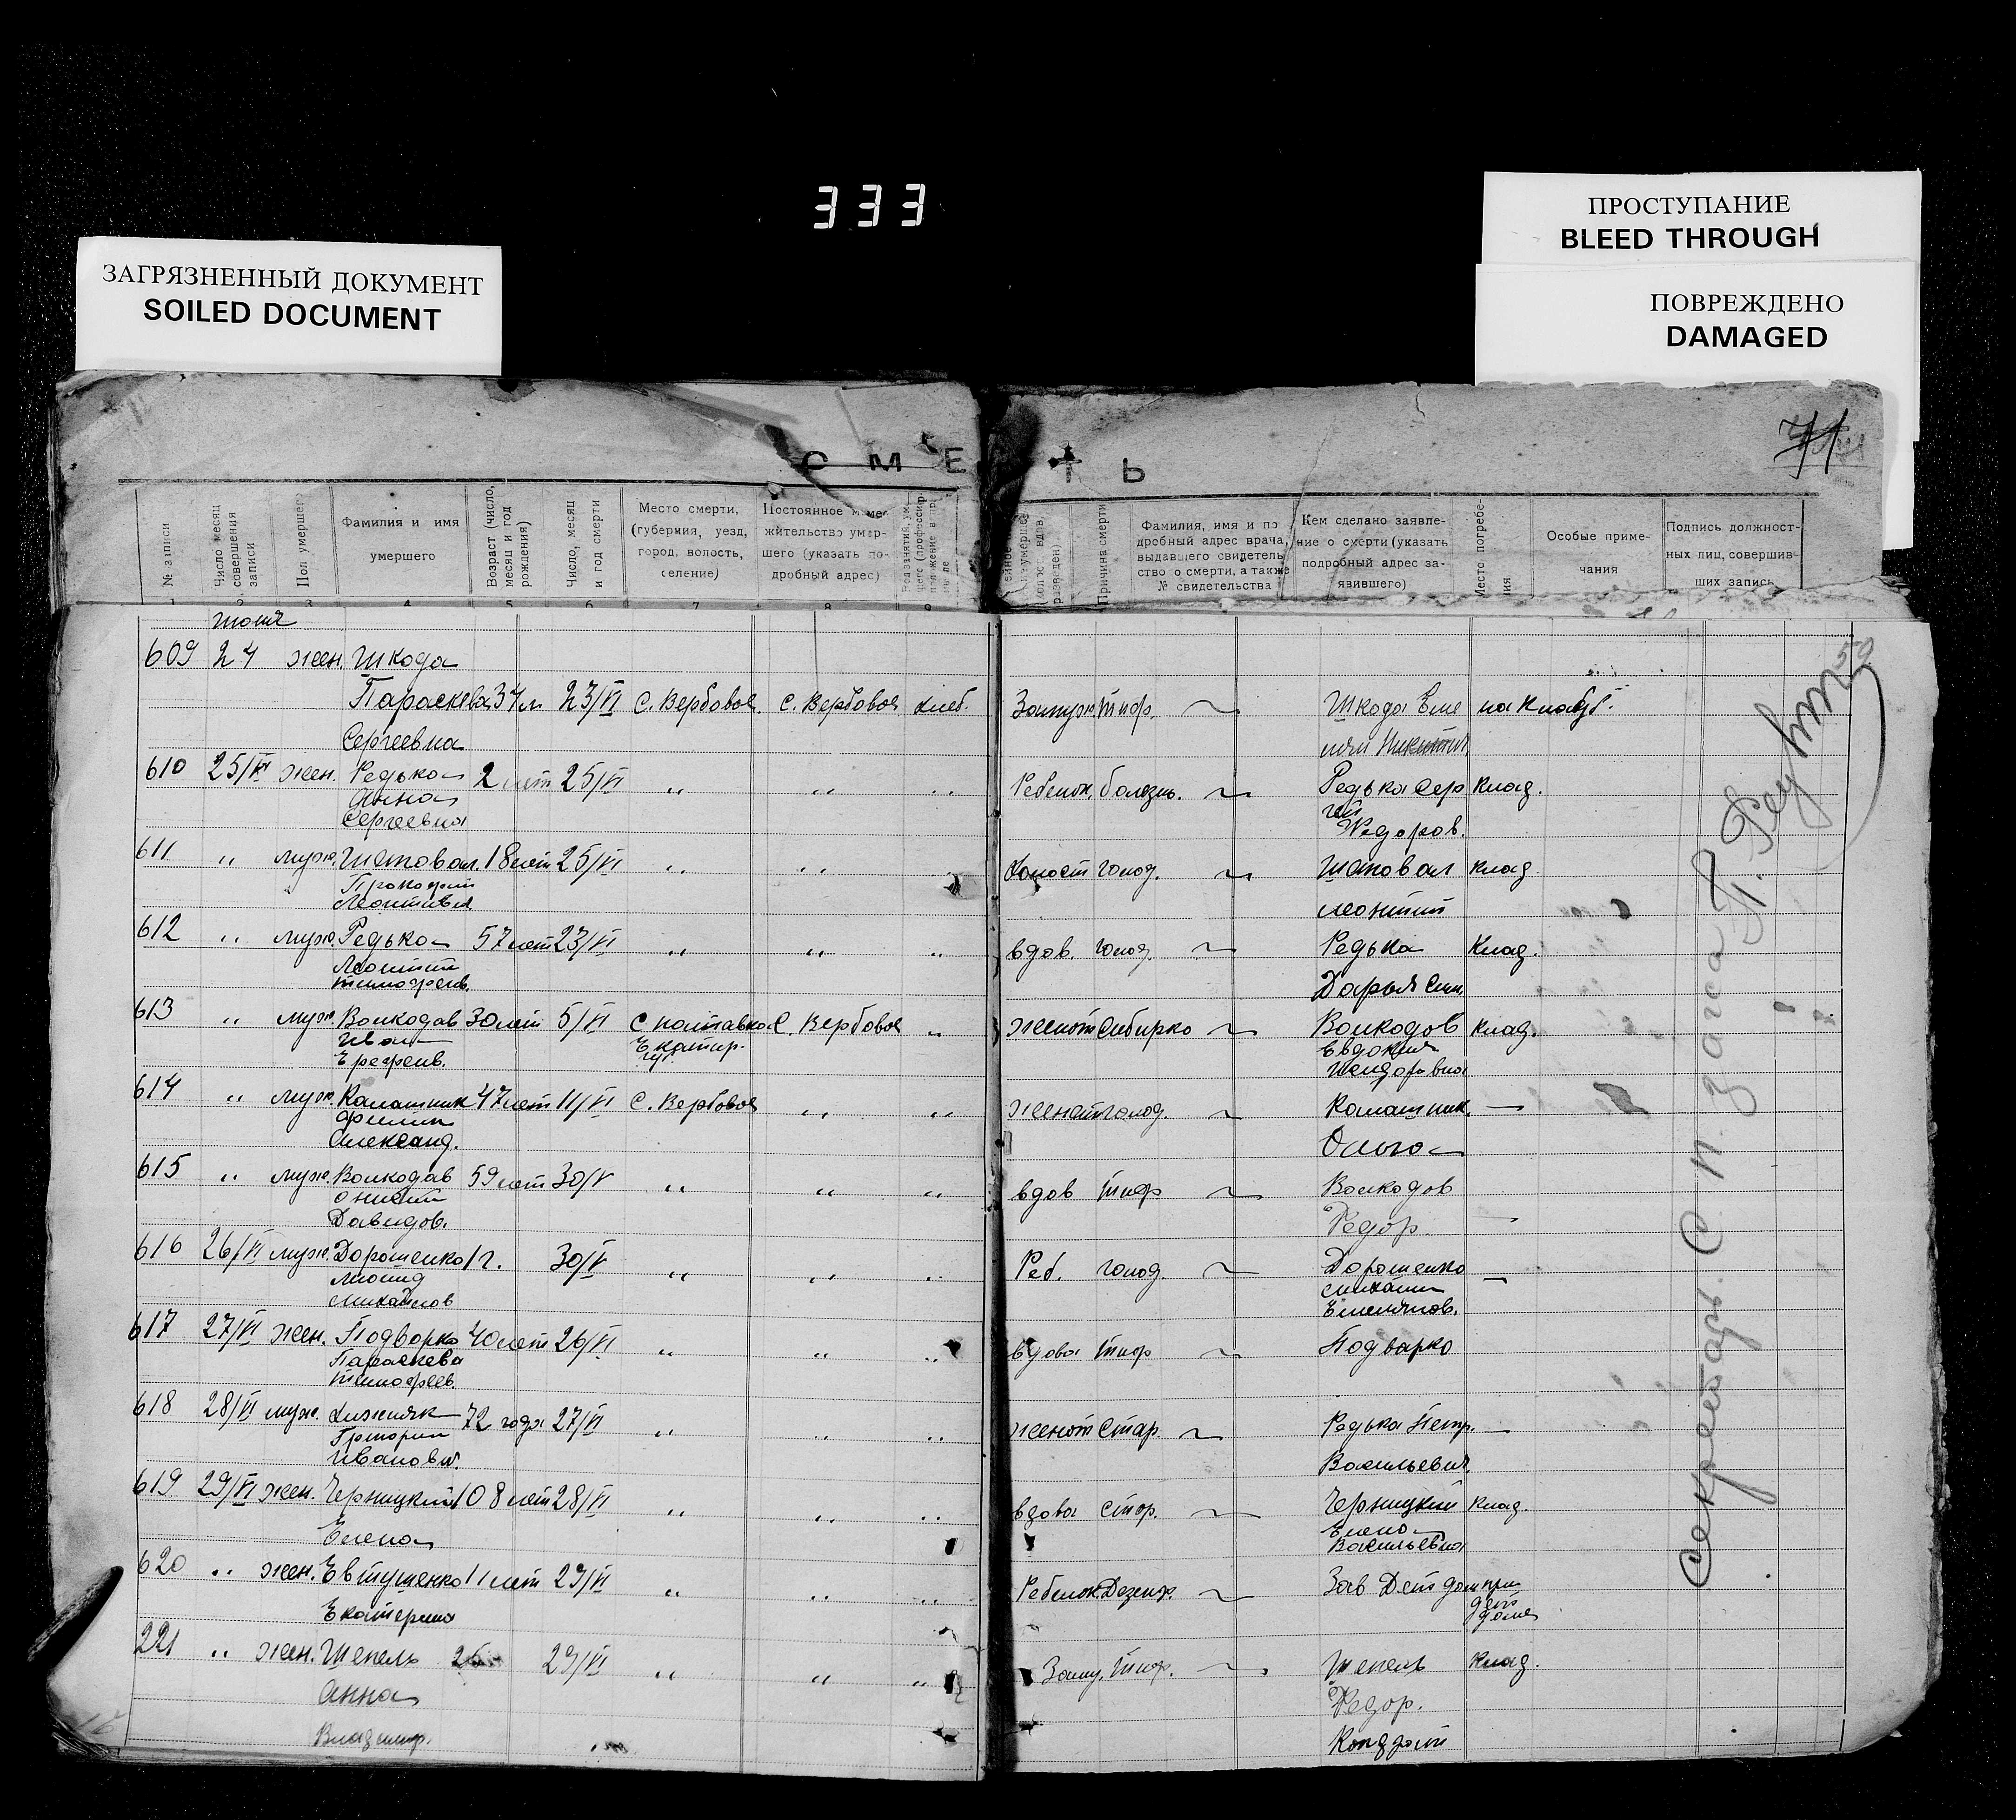 333
ЗАГРЯЗНЕННЫЙ ДОКУМЕНТ
SOILED DOCUMENT
ПРОСТУПАНИЕ
BLEED THROUGH
ПОВРЕЖДЕНО
DAMAGED
71
СМЕ ТЬ
№ записи
Число месяц совершения записи
Пол умершего
Фамилия и имя умершего
Возраст (число, месяц и год рождения)
Число, месяц и год смерти
Место смерти, (губермия, уезд, город, волость, селение)
Постоянное жительство умершего (указать подробный адрес)
Причина смерти
Фамилия, имя и подробный адрес врача, выдавшего свидетельство о смерти, а также № свидетельства
Кем сделано заявление о смерти (указать подробный адрес заявившего)
Место погребения
Особые примечания
Подпись должностных лиц, совершивших запись
1 2 3 4 5 6 7 8 9
июня
609 24 жен. Шкода
Параскева 34 л 23/VI С. Вербовое. С. Вербовое хлеб. Замуж. Тиф. Шкода Еме на кладб.
Сергеевна
610 25/VI жен. Редька 2 лет 25/VI " " " Ребенок. болезнь. Редька Сер клад.
Анна гей
Сергеевна Федоров.
611 " муж. Шаповал. 18 лет 25/VI " " Холост голод. Шаповал клад
Прокофий
Леонтьев Леонтий
612 " муж. Редька 57 лет 23/VI " " " вдов. голод. Редька Клад.
Леонтий
Тимофеев. Дарья
613 " муж. Волкодав 30 лет 5/VI С. Вербовое " женат Сибирко Волкодов клад.
Иван Екатер. Евдокия
Ерофеев. губ.
614 " муж. Калашник 47 лет 11/VI С. Вербовое " " женат голод. Калашник. —
Филип
Александ. Ольга
615 " муж. Волкодав 59 лет 30/V " " " вдов Тиф Волкодов
Давидов. Федор —
616 26/VI муж. Дорошенко 1 г. 30/V " " " Реб. голод. Дорошенко —
Леонид Михаил
Михайлов Емельянов.
617 27/VI жен. Подворко 40 лет 26/VI " " " вдова Тиф Подварко
Параскева
Тимофеев.
618 28/VI муж. Хижняк 72 года 27/VI " " " женат Стар. Редька Петр. —
Григорий
Иванов. Васильевич.
619 29/VI жен. Черницкий 108 лет 28/VI " " " вдова стар. Черницкий клад.
Елена Елена
Васильевна
620 " жен. Евтушенко 11 лет 29/VI " " " Ребенок. Дезент. Зав Дет дом при
Екатерина дет
доме
221 " жен. Шепель 26 29/VI " " " Заму. Тиф. Шепель клад.
Анна Федор.
Владимир. Кондрат
Секретарь С. П. загса П.